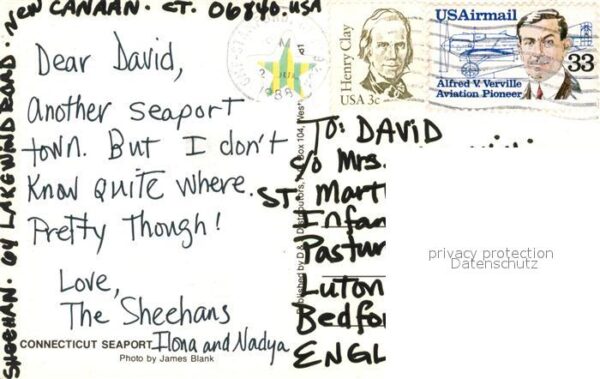 SHEEHAN. 64 LAKEWIND ROAD. NEW CANAAN. CT. 06840. USA
Dear David,
Another seaport
town. But I don't
know QUITE where.
Pretty Though!
Love,
The Sheehans
Ilona and Nadya
CONNECTICUT SEAPORT
Photo by James Blank
Published by D & Distributors, Box 104, West
1988
Henry Clay
USA 3c
USAirmail
33
Alfred V. Verville
Aviation Pioneer
To: DAVID
c/o Mrs.
ST. Mart
Infan
Pastur
Luton
Bedfo
ENGL
privacy protection
Datenschutz